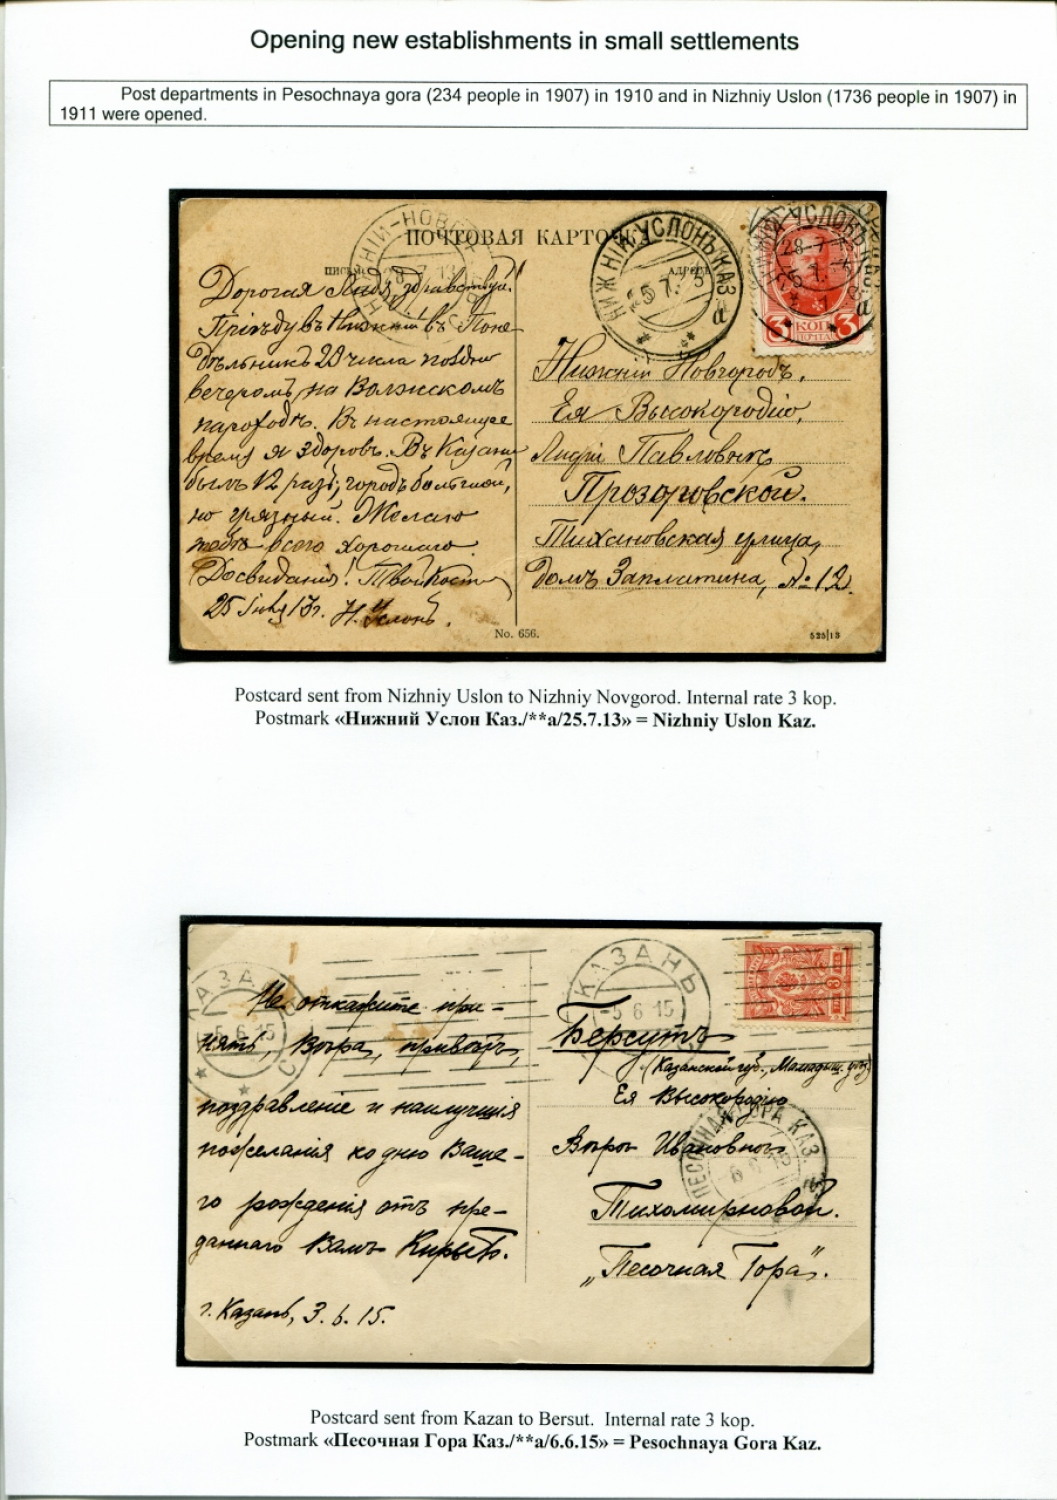 Opening new establishments in small settlements
Post departments in Pesochnaya gora (234 people in 1907) in 1910 and in Nizhniy Uslon (1736 people in 1907) in
1911 were opened.
ПОЧТОВАЯ КАРТОЧКА
НИЖНІЙ УСЛОНЪ КАЗ.
25 7. 13
а
28-7-13
3 КОП 3
Дорогая Лидія, здравствуй!
Пріѣду въ Нижній въ Поне-
дѣльникъ 29 числа поздно
вечеромъ, на Волжскомъ
пароходѣ. Въ настоящее
время я здоровъ. Въ Казани
былъ 2 раза, городъ большой,
но грязный. Желаю
тебѣ всего хорошаго.
Досвиданія! Твой Костя
25 Іюля 13 г. Н. Услонъ.
Нижній Новгородъ,
Ея Высокородію,
Лидіи Павловнѣ
Прозоровской.
Тихановская улица,
домъ Заплатина, № 12.
No. 656.
525|13
Postcard sent from Nizhniy Uslon to Nizhniy Novgorod. Internal rate 3 kop.
Postmark «Нижний Услон Каз./**а/25.7.13» = Nizhniy Uslon Kaz.
КАЗАНЬ
-5 6 15
Не откажите при-
нять, Вѣра,
поздравленіе и наилучшія
пожеланія ко дню Ваше-
го рожденія отъ пре-
даннаго Вамъ
г. Казань, 3.6.15.
КАЗАНЬ
-5 6 15
Берсутъ
(Казанской губ., Мамадыш. уѣз)
Ея Высокородію
Вѣрѣ Ивановнѣ
Тихомирновой.
„Песочная Гора".
ПЕСОЧНАЯ ГОРА КАЗ.
6 6 15
Postcard sent from Kazan to Bersut. Internal rate 3 kop.
Postmark «Песочная Гора Каз./**а/6.6.15» = Pesochnaya Gora Kaz.